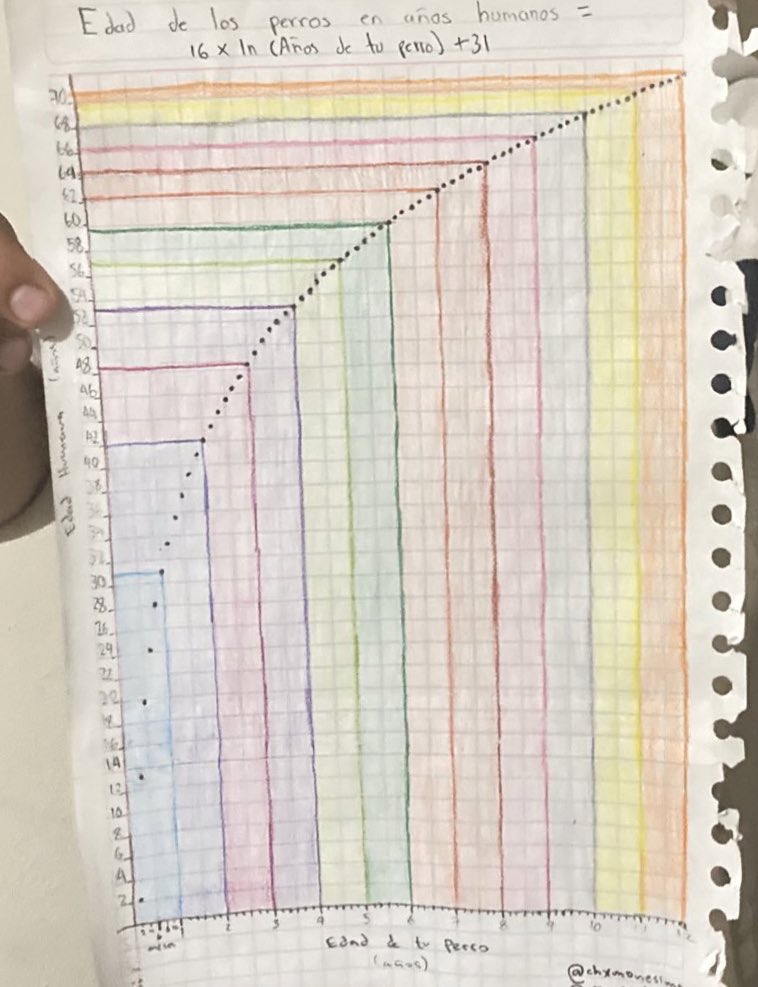 Edad de los perros en años humanos =
16 x ln (Años de tu perro) +31
70
68
66
64
62
60
58
56
54
52
50
48
46
44
42
40
38
36
34
32
30
28
26
24
22
20
18
16
14
12
10
8
6
4
2
Edad Humana (años)
2 3 4 5 6 7 8 9 10 11 12
Edad de tu perro
(años)